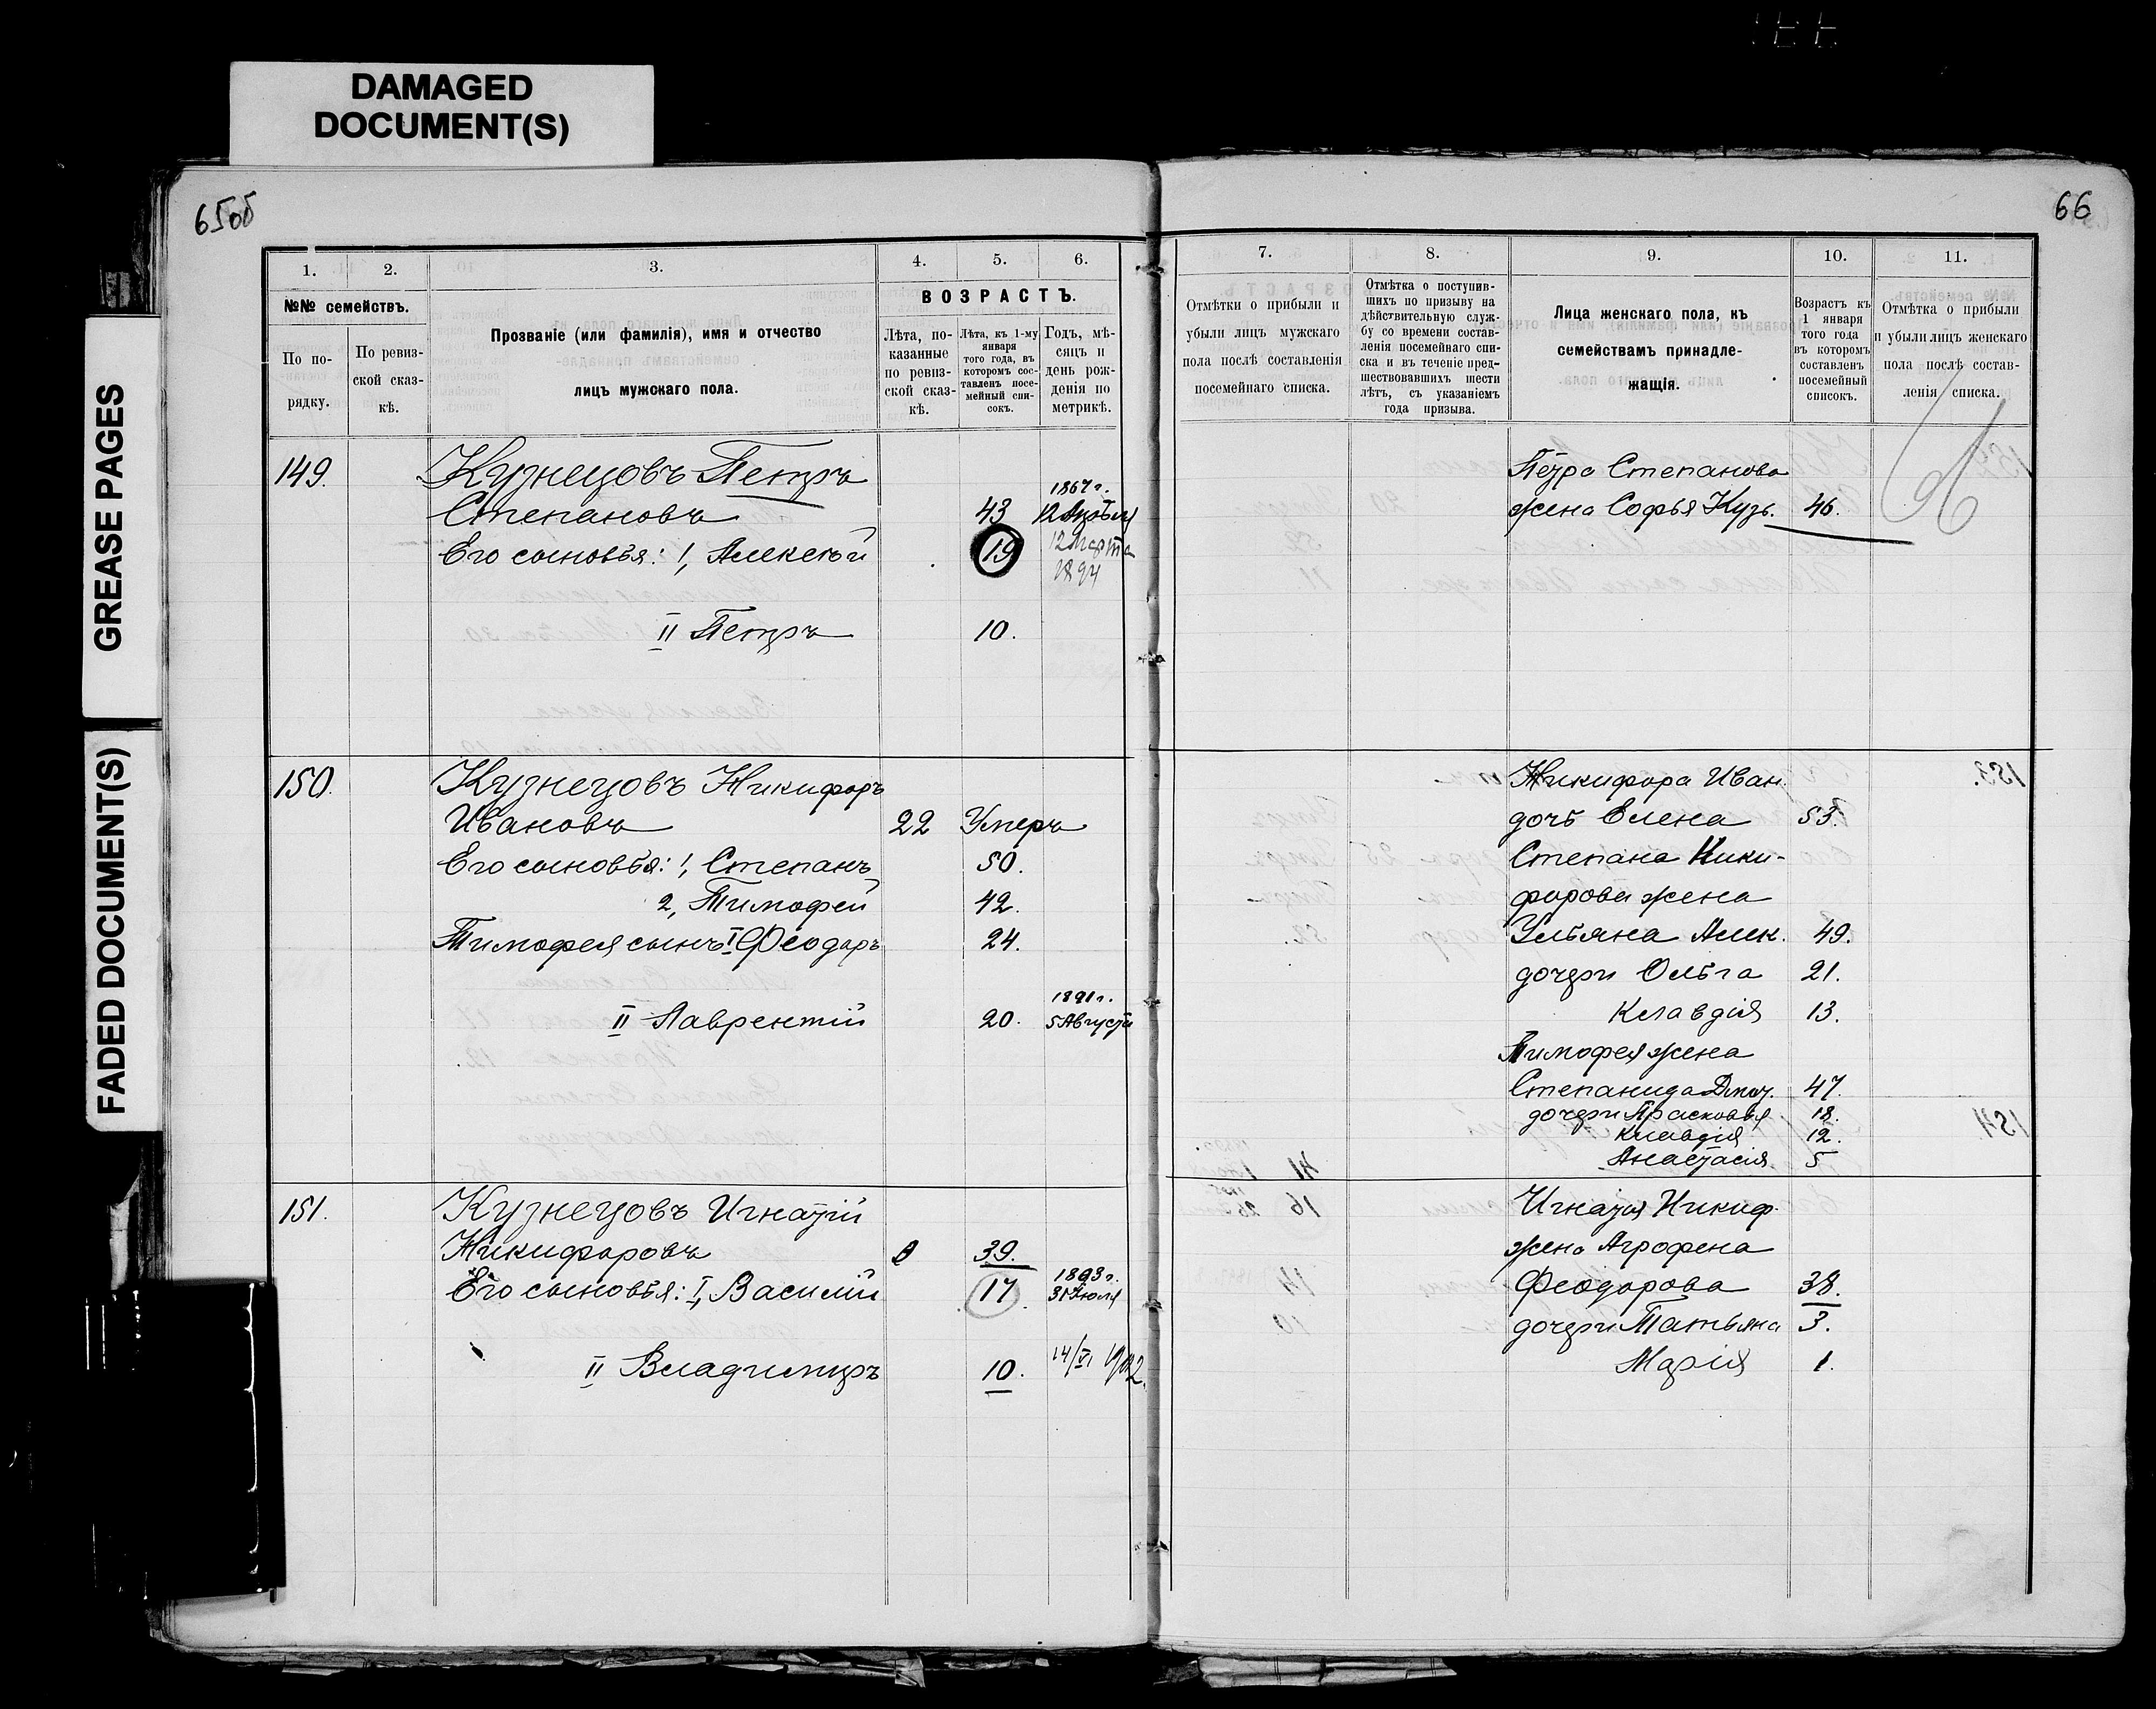 DAMAGED
DOCUMENT(S)
GREASE PAGES
FADED DOCUMENT(S)
65об
66
1.
2.
3.
4.
5.
6.
№№ семействъ.
По по-
рядку.
По ревиз-
ской сказ-
кѣ.
Прозваніе (или фамилія), имя и отчество
лицъ мужскаго пола.
ВОЗРАСТЪ.
Лѣта, по-
казанные
по ревиз-
ской сказ-
кѣ.
Лѣта, къ 1-му
января
того года, въ
которомъ сос-
тавленъ посе-
мейный спи-
сокъ.
Годъ, мѣ-
сяцъ и
день рож-
денія по
метрикѣ.
149.
Кузнецовъ Петръ
1867 г.
Степановъ 43 12 Апрѣля
Его сыновья: 1, Алексѣй 19 12 Марта
1894
II Петръ 10.
150. Кузнецовъ Никифоръ
Ивановъ 22 Умеръ
Его сыновья: 1, Степанъ 50.
2, Тимофей 42.
Тимофея сынъ I Феодоръ 24.
1891 г.
II Лаврентій 20. 5 Августа
151. Кузнецовъ Игнатій
Никифоровъ 39.
1893 г.
Его сыновья: I, Василій 17 31 Іюля
II Владимиръ 10. 14/VI 1902.
7.
8.
9.
10.
11.
Отмѣтки о прибыли и
убыли лицъ мужского
пола послѣ составленія
посемейнаго списка.
Отмѣтка о поступив-
шихъ по призыву на
дѣйствительную служ-
бу со времени состав-
ленія посемейнаго спи-
ска и въ теченіе пред-
шествовавшихъ шести
лѣтъ, съ указаніемъ
года призыва.
Лица женскаго пола, къ
семействамъ принадле-
жащія.
Возрастъ къ
1 января
того года
въ которомъ
составленъ
посемейный
списокъ.
Отмѣтка о прибыли
и убыли лицъ женскаго
пола послѣ состав-
ленія списка.
Петра Степанова
жена Софья Кузь. 46.
Никифора Иван.
дочь Елена 53.
Степана Ники-
форова жена
Ульяна Алек. 49.
дочери Ольга 21.
Клавдія 13.
Тимофея жена
Степанида 47.
дочери Прасковья 18.
Клавдія 12.
Анастасія 5
Игнатія Никиф.
жена Агрофена
Феодорова 38.
дочери Татьяна 3.
Марія 1.